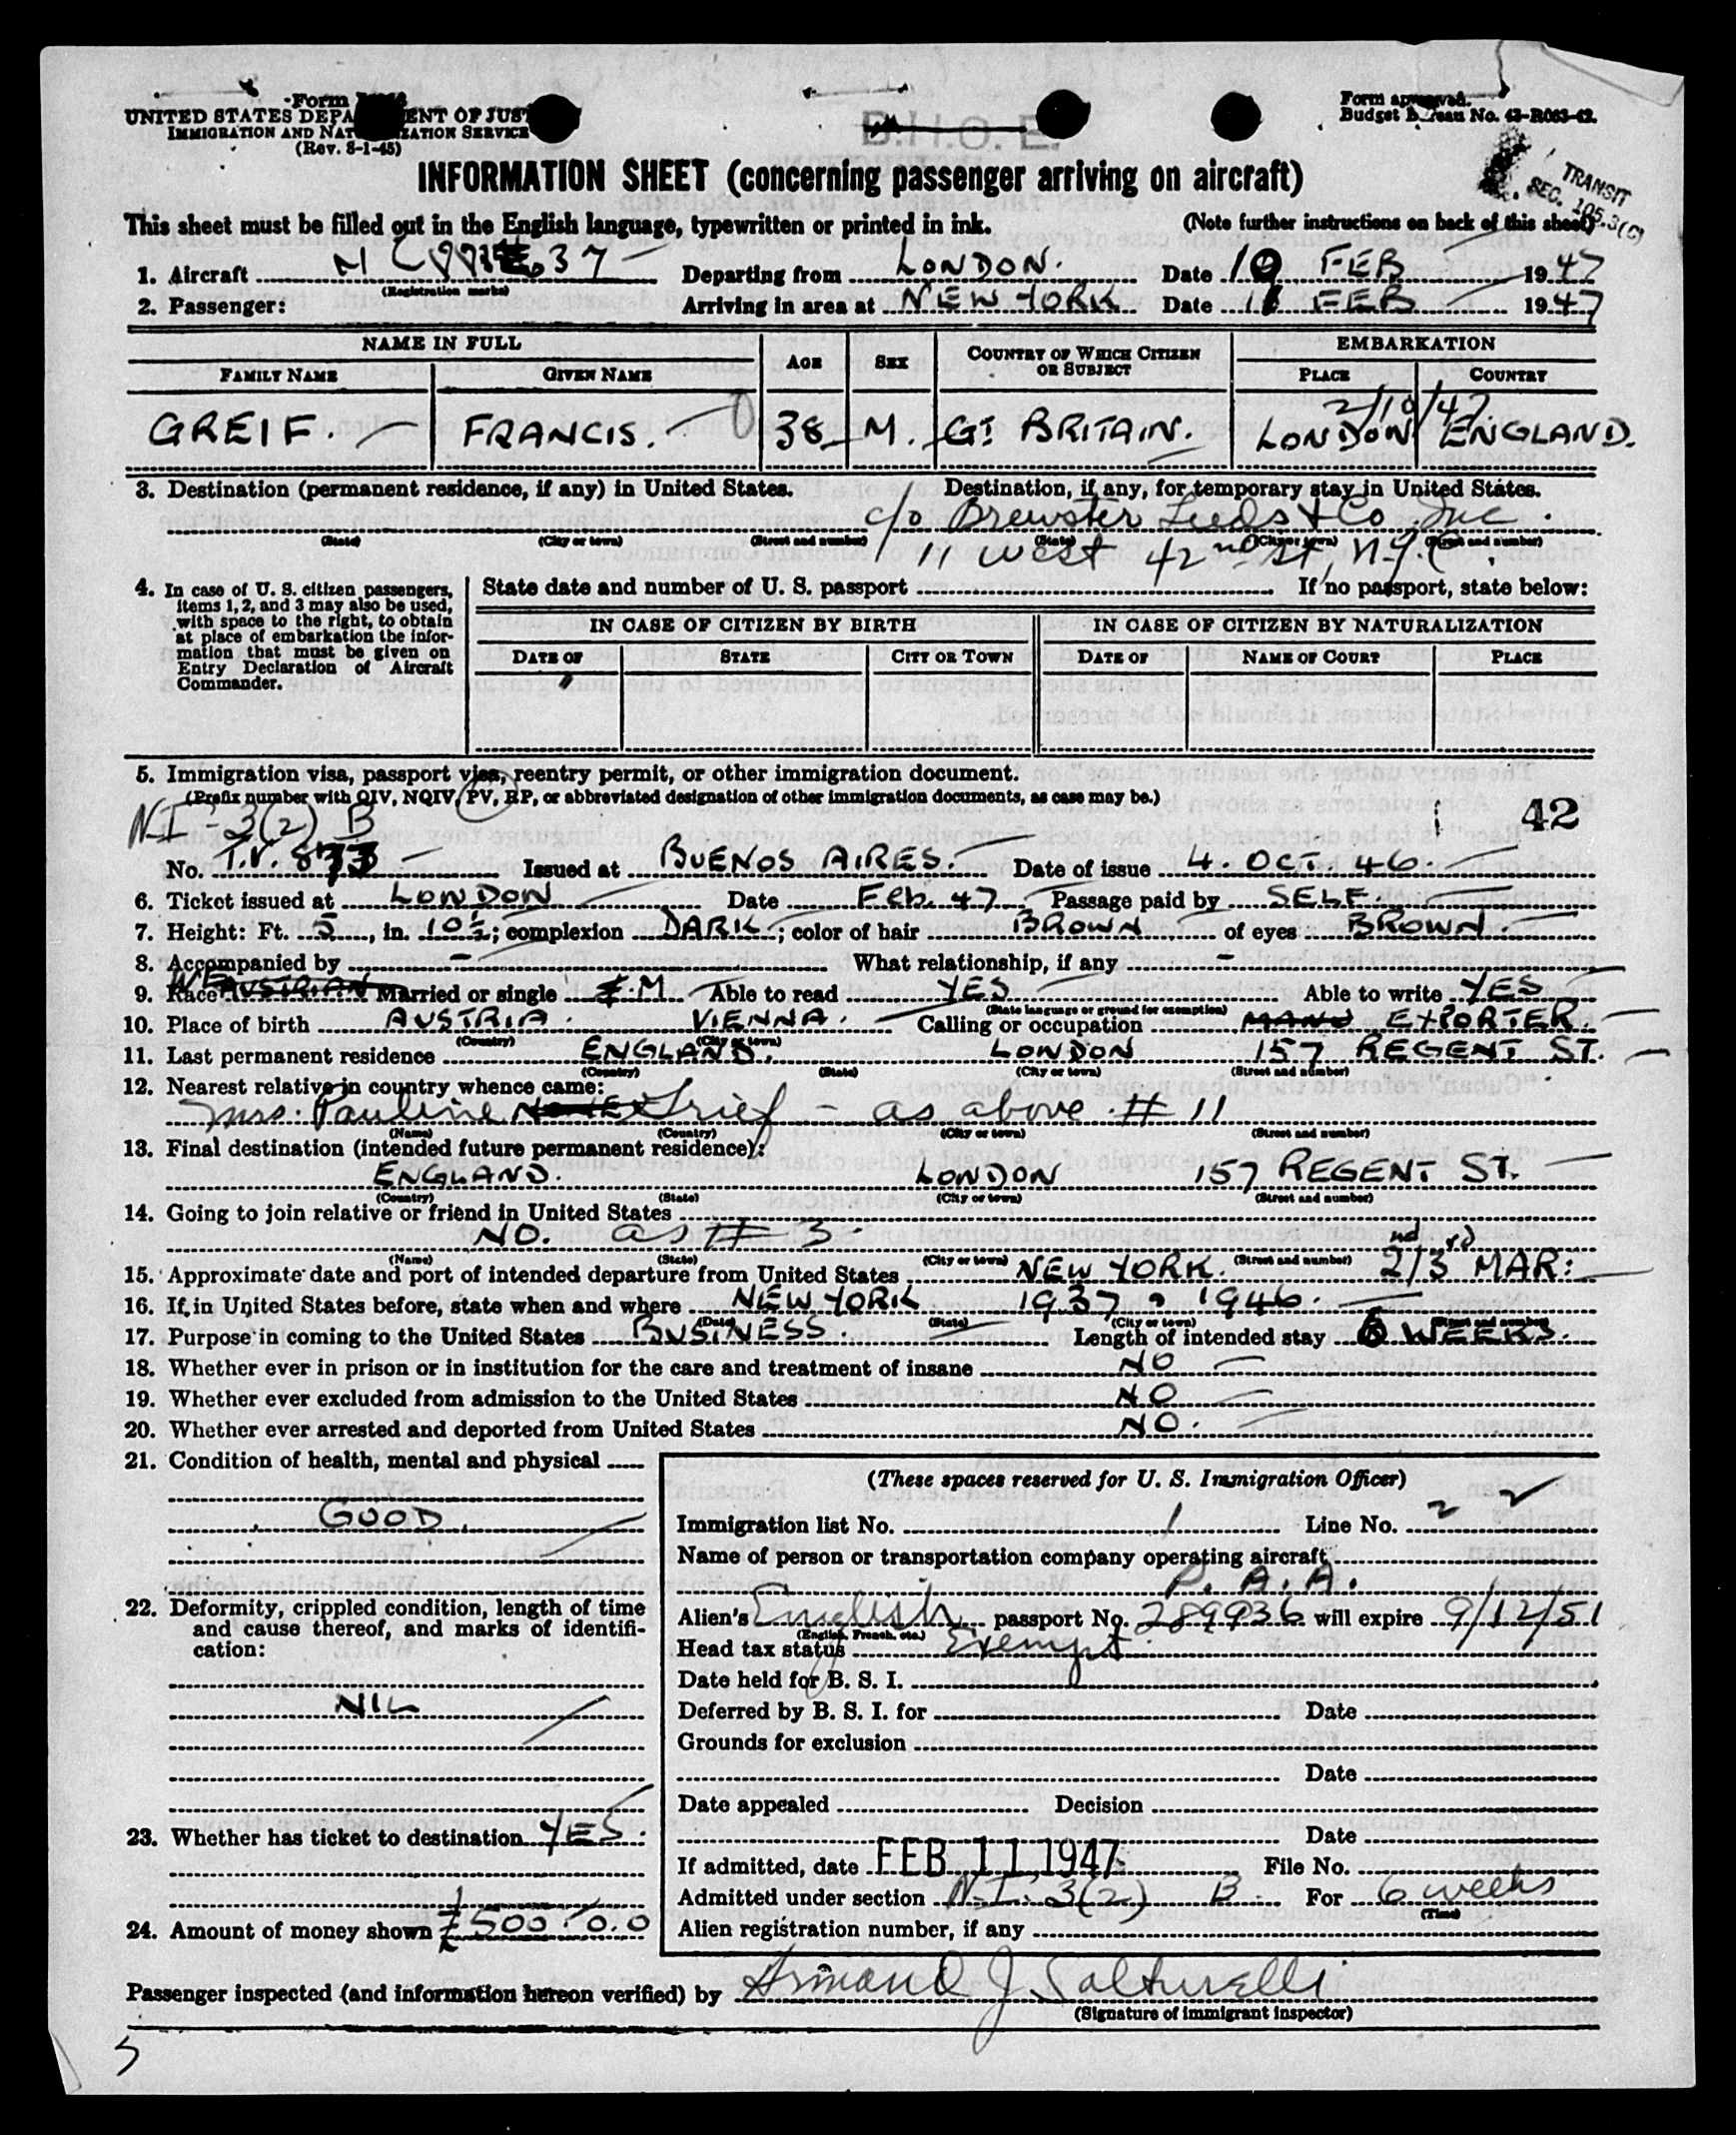 Form
UNITED STATES DEPA ENT OF JUS
IMMIGRATION AND NAT ZATION SERVICE
(Rev. 8-1-45)
B.H.O.E.
Form approved.
Budget Bureau No. 43-R063-42.
TRANSIT
SEC. 105.3(C)
INFORMATION SHEET (concerning passenger arriving on aircraft)
This sheet must be filled out in the English language, typewritten or printed in ink. (Note further instructions on back of this sheet)
1. Aircraft (Registration marks) Departing from LONDON. Date 10 FEB 1947
2. Passenger: Arriving in area at NEW YORK Date 11 FEB 1947
NAME IN FULL AGE SEX COUNTRY OF WHICH CITIZEN OR SUBJECT EMBARKATION
FAMILY NAME GIVEN NAME PLACE COUNTRY
2/10/47.
GREIF. FRANCIS. 38 M. GT BRITAIN. LONDON ENGLAND.
3. Destination (permanent residence, if any) in United States. Destination, if any, for temporary stay in United States.
c/o Brewster Leeds & Co Inc.
(State) (City or town) (Street and number) (State) (City or town) (Street and number)
11 West 42nd St, N.Y.C.
4. In case of U. S. citizen passengers, items 1, 2, and 3 may also be used, with space to the right, to obtain at place of embarkation the information that must be given on Entry Declaration of Aircraft Commander.
State date and number of U. S. passport If no passport, state below:
IN CASE OF CITIZEN BY BIRTH IN CASE OF CITIZEN BY NATURALIZATION
DATE OF STATE CITY OR TOWN DATE OF NAME OF COURT PLACE
5. Immigration visa, passport visa, reentry permit, or other immigration document.
(Prefix number with QIV, NQIV, PV, RP, or abbreviated designation of other immigration documents, as case may be.)
42
NI-3(2) B
No. T.V. 873 Issued at BUENOS AIRES. Date of issue 4. OCT. 46.
6. Ticket issued at LONDON Date Feb. 47 Passage paid by SELF.
7. Height: Ft. 5, in. 10½; complexion DARK; color of hair BROWN of eyes BROWN.
8. Accompanied by - What relationship, if any -
9. Race AUSTRIAN Married or single M Able to read YES Able to write YES
(State language or ground for exemption)
10. Place of birth AUSTRIA. VIENNA. Calling or occupation EXPORTER.
(Country) (City or town)
11. Last permanent residence ENGLAND. LONDON 157 REGENT ST.
(Country) (State) (City or town) (Street and number)
12. Nearest relative in country whence came:
Mrs. Pauline Grief - as above # 11
(Name) (Country) (City or town) (Street and number)
13. Final destination (intended future permanent residence):
ENGLAND. LONDON 157 REGENT ST.
(Country) (State) (City or town) (Street and number)
14. Going to join relative or friend in United States
NO. as # 3
(Name) (State) (City or town) (Street and number)
15. Approximate date and port of intended departure from United States NEW YORK. 2nd/3rd MAR:
16. If in United States before, state when and where NEW YORK 1937, 1946.
(Date) (State) (City or town) (Street and number)
17. Purpose in coming to the United States BUSINESS. Length of intended stay 6 WEEKS.
18. Whether ever in prison or in institution for the care and treatment of insane NO
19. Whether ever excluded from admission to the United States NO
20. Whether ever arrested and deported from United States NO.
21. Condition of health, mental and physical
GOOD.
22. Deformity, crippled condition, length of time and cause thereof, and marks of identification:
NIL
23. Whether has ticket to destination YES.
24. Amount of money shown £500.0.0
(These spaces reserved for U. S. Immigration Officer)
Immigration list No. 1 Line No. 2
Name of person or transportation company operating aircraft
P. A. A.
Alien's English passport No. 289936 will expire 9/12/51
(English, French, etc.)
Head tax status Exempt
Date held for B. S. I.
Deferred by B. S. I. for Date
Grounds for exclusion
Date
Date appealed Decision
Date
If admitted, date FEB 11 1947 File No.
Admitted under section N.I. 3(2) B. For 6 weeks
(Time)
Alien registration number, if any
Passenger inspected (and information hereon verified) by Armand J. Salturelli
(Signature of immigrant inspector)
5